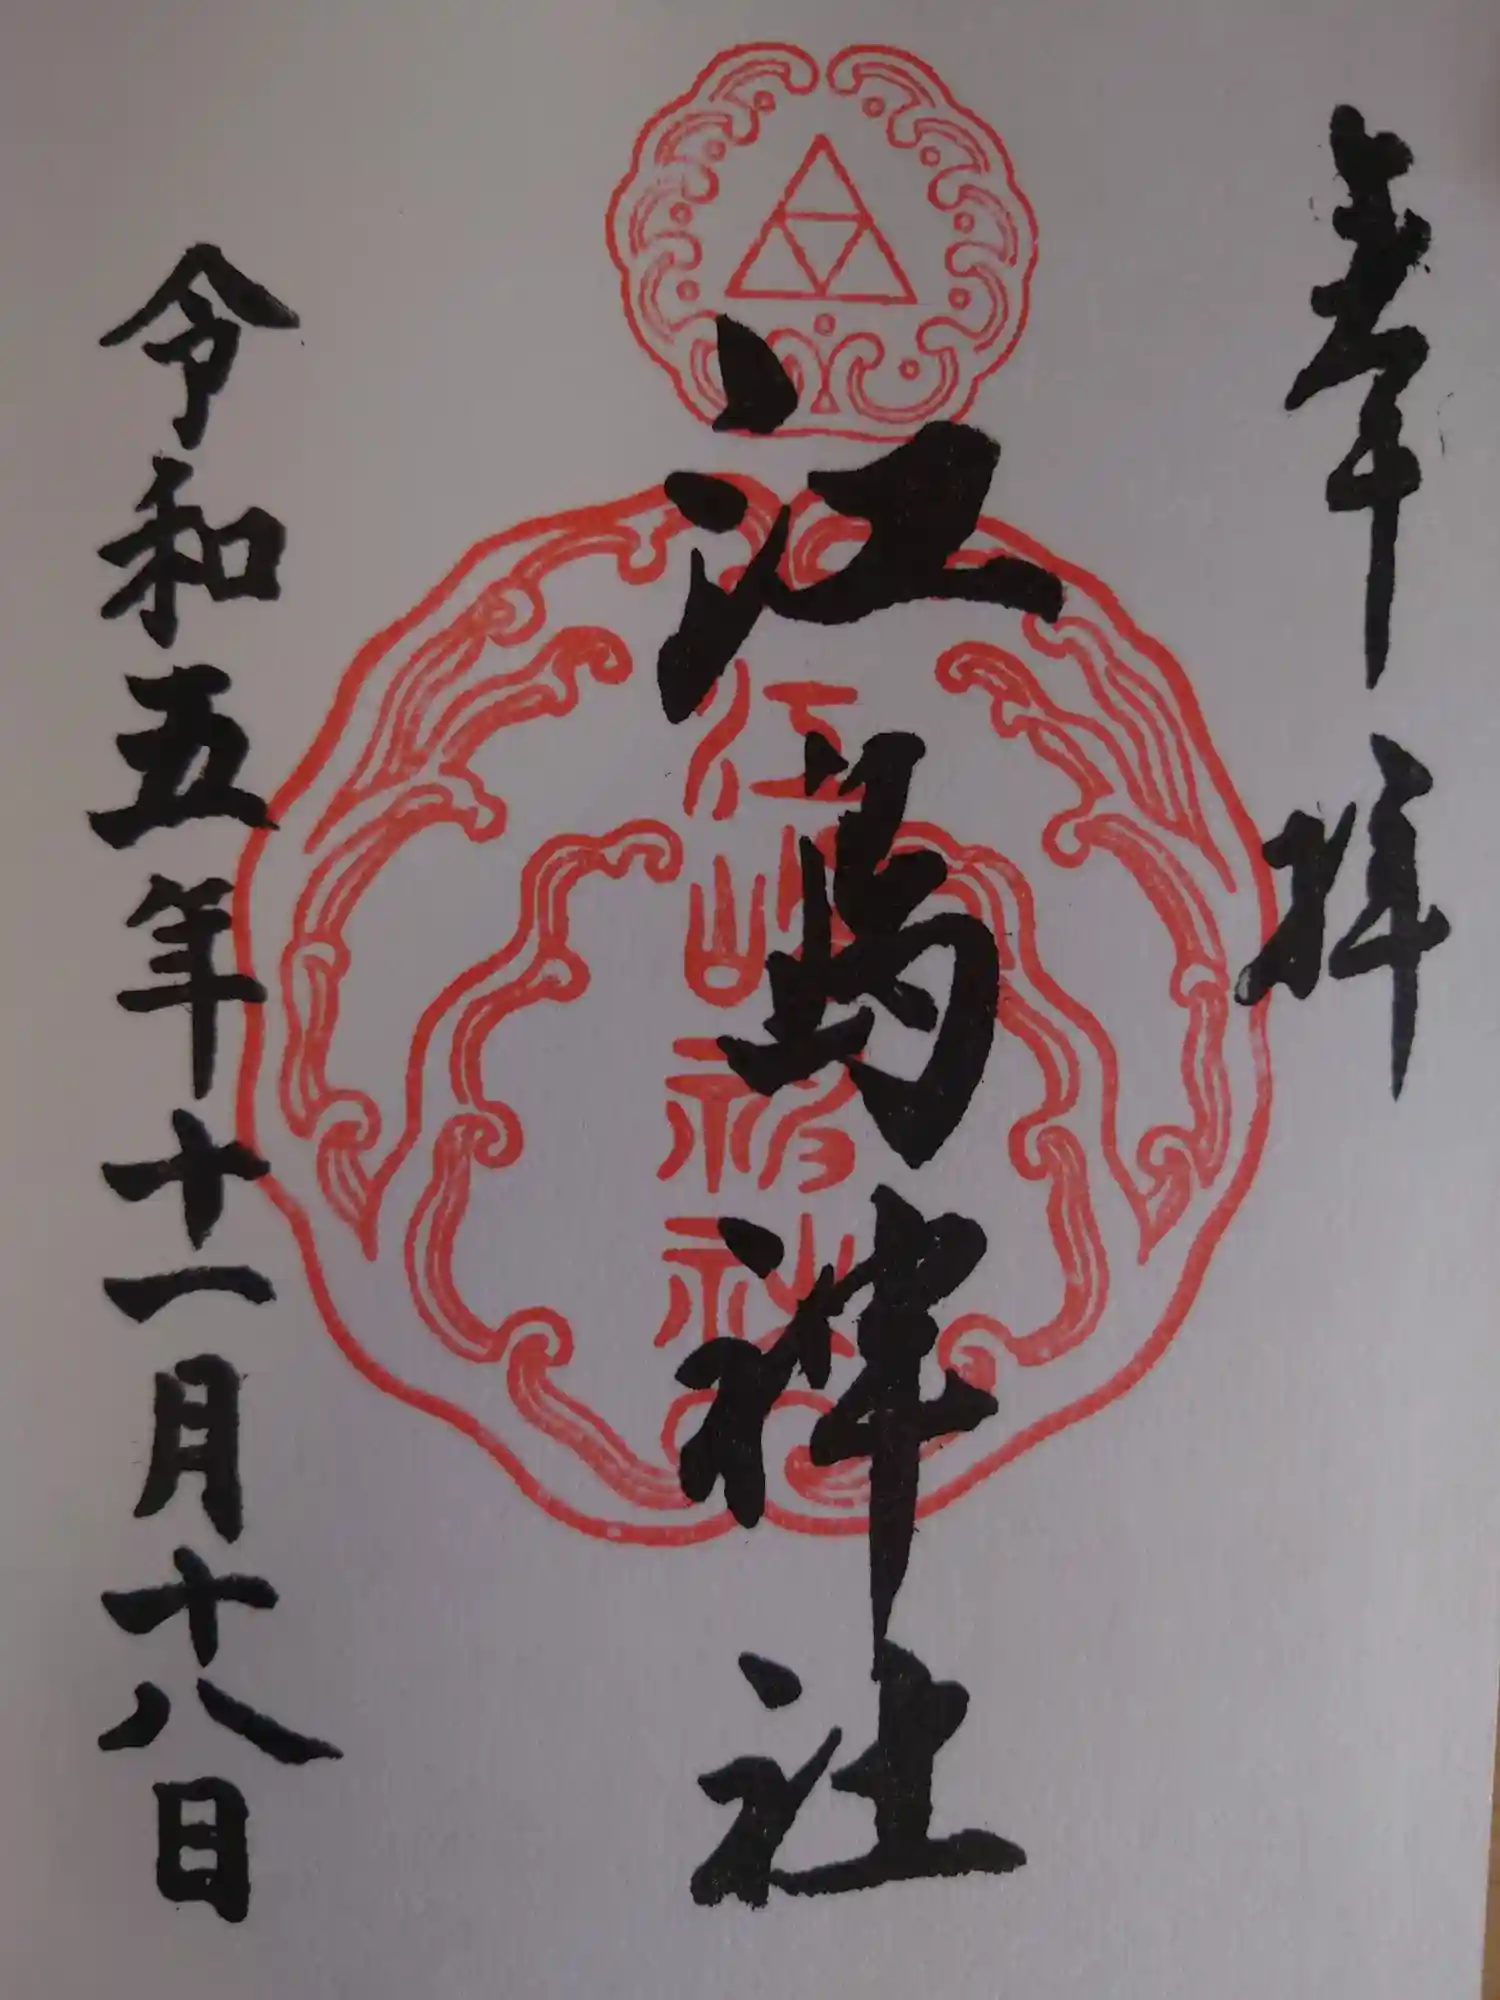 奉拝
江島神社
江嶋神社
令和五年十一月十八日